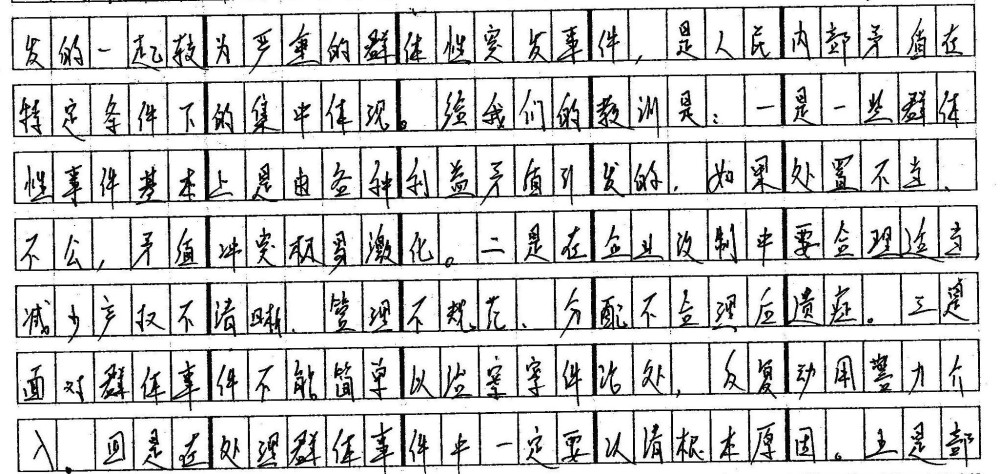 发的一起较为严重的群体性突发事件，是人民内部矛盾在
特定条件下的集中体现。给我们的教训是：一是一些群体
性事件基本上是由各种利益矛盾引发的，如果处置不当、
不公，矛盾冲突极易激化。二是在企业改制中要合理适当
减少产权不清晰、管理不规范、分配不合理后遗症。三是
面对群体事件不能简单以治安案件论处，反复动用警力介
入。四是在处理群体事件中一定要认清根本原因。五是部